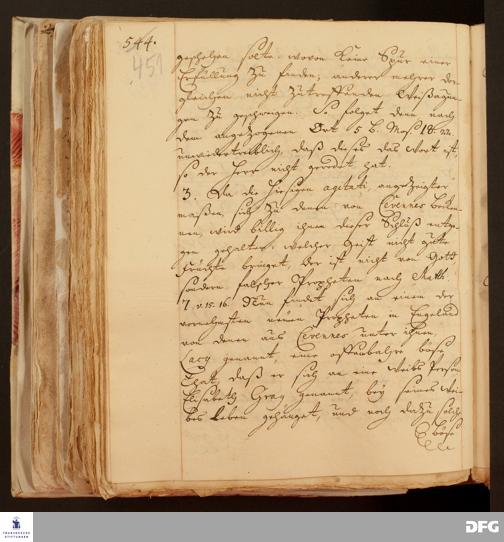 544.
451
geschehen solte, wovon keine Spur einer
Erfüllung zu finden, anderer mehrer der
gleichen nicht zutreffenden Weißagun-
gen zu geschweigen. So folget denn nach
dem angezogenen Ort 5 B. Mos. 18. 22.
unwiedertreiblich, daß dieses das Wort ist,
so der Herr nicht geredet hat.
3. Da die hiesigen agitati, angezeigter
maßen, sich zu denen von Cevennes beken-
nen, wird billig ihnen dieser Schluß entge-
gen gehalten: welcher Geist nicht gute
Früchte bringet, der ist nicht von Gott
sondern falscher Propheten nach Matth.
7. v. 15. 16. Nun findet sich an einem der
vornehmsten neuen Propheten in Engeland
von denen aus Cevennes unter ihnen,
Lacy genannt, eine offenbahre böse
That, daß er sich an eine Weibs Person
Elisabeth Gray genannt, bey seines Wei-
bes Leben gehänget, und noch dazu solche
böse
FRANCKESCHE
STIFTUNGEN
DFG